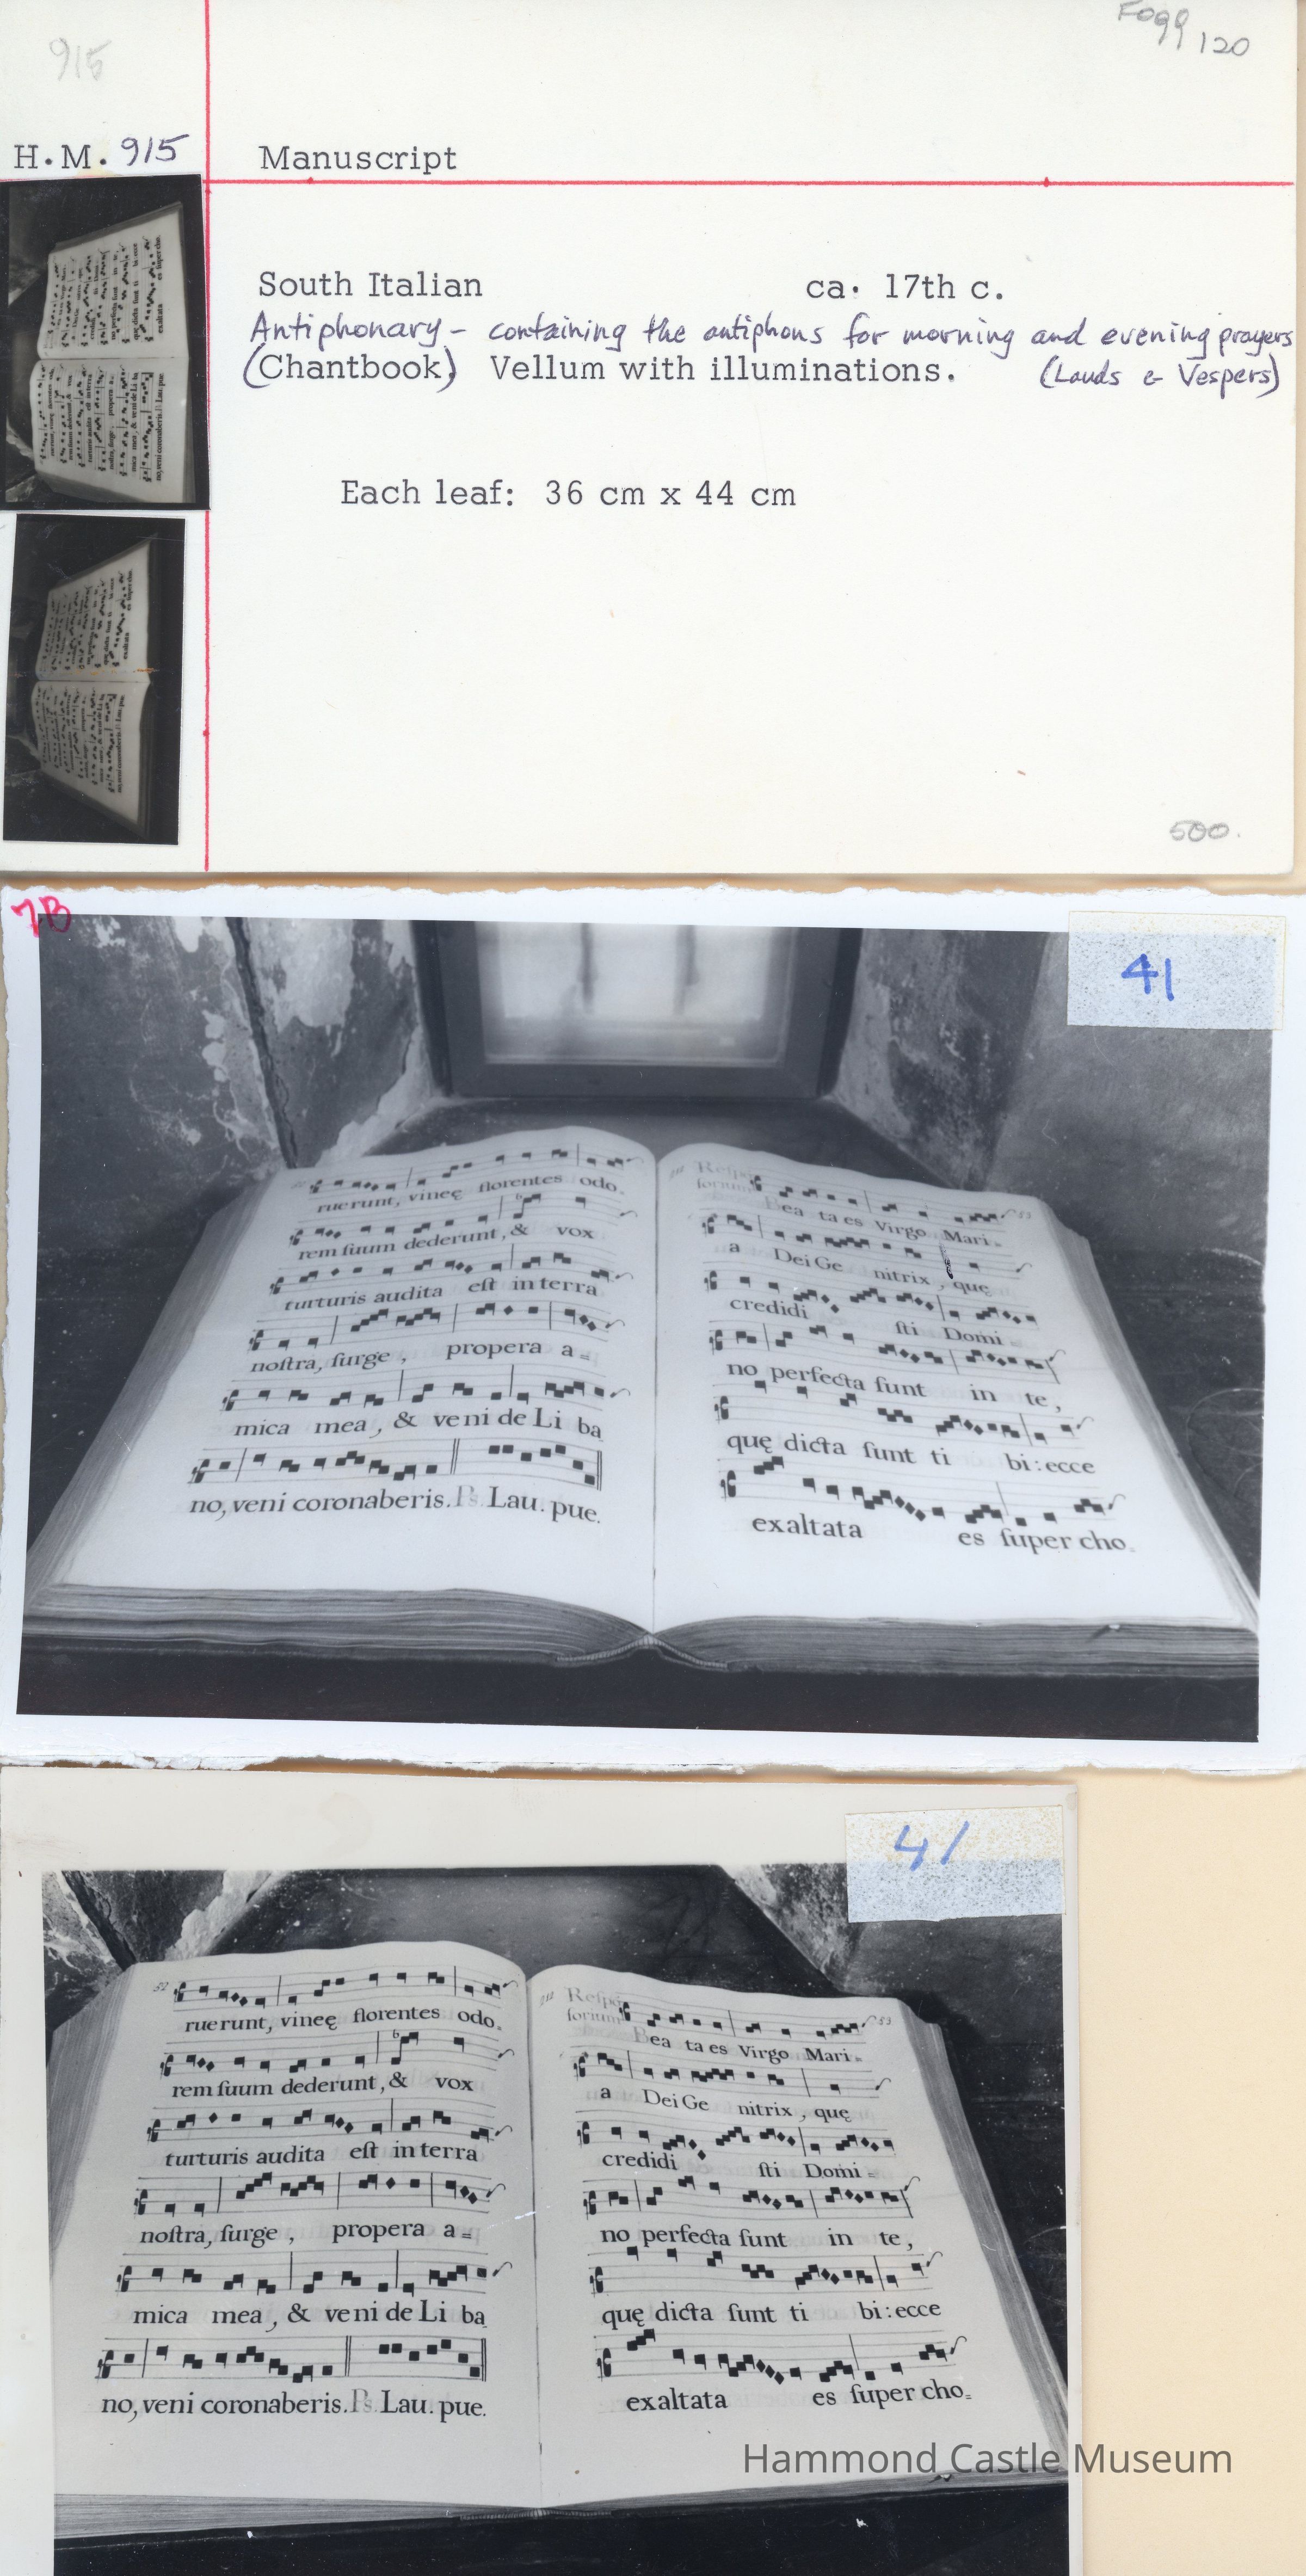 915
Fogg 120
H.M. 915
Manuscript
South Italian ca. 17th c.
Antiphonary - containing the antiphons for morning and evening prayers
(Chantbook) Vellum with illuminations. (Lauds & Vespers)
Each leaf: 36 cm x 44 cm
500.
7B
41
ruerunt, vineę florentes odo.
rem ſuum dederunt, & vox
turturis audita eſt in terra
noſtra, ſurge, propera a=
mica mea, & veni de Li ba
no, veni coronaberis. Ps. Lau. pue.
Reſpõ
ſorium
Bea ta es Virgo Mari-
53
a Dei Ge nitrix, quę
credidi ſti Domi=
no perfecta ſunt in te,
quę dicta ſunt ti bi: ecce
exaltata es ſuper cho.
41
52
ruerunt, vineę florentes odo.
rem ſuum dederunt, & vox
turturis audita eſt in terra
noſtra, ſurge, propera a=
mica mea, & veni de Li ba
no, veni coronaberis. Ps. Lau. pue.
Reſpõ
ſorium
Bea ta es Virgo Mari=
53
a Dei Ge nitrix, quę
credidi ſti Domi=
no perfecta ſunt in te,
quę dicta ſunt ti bi: ecce
exaltata es ſuper cho=
Hammond Castle Museum